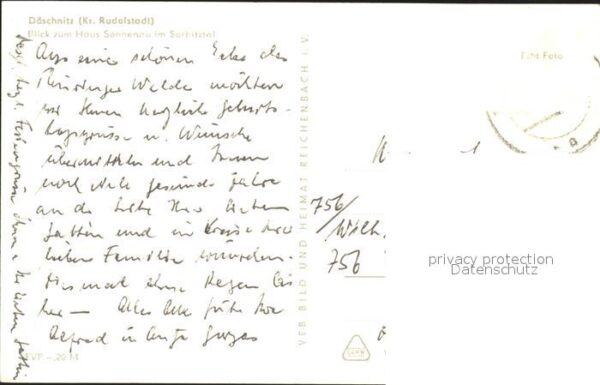 Döschnitz (Kr. Rudolstadt)
Blick zum Haus Sonnenau im Sorbitztal
Aus einer schönen Ecke des
Thüringer Waldes möchten
wir Ihnen herzliche Geburts-
tagsgrüsse u. Wünsche
übermitteln und Ihnen
noch viele gesunde Jahre
an der Seite Ihres lieben
Gatten und im Kreise Ihrer
lieben Familie wünschen.
Diesmal ohne Regen bis
her — Alles Gute Ihre
Alfred u.
herzl. Feriengrüsse Ihnen u. Ihr lieben
VEB BILD UND HEIMAT REICHENBACH i. V.
Echt Foto
756/
756
privacy protection
Datenschutz
EVP -,20 M